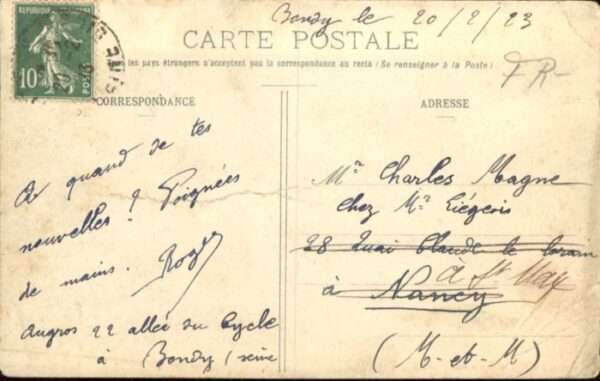 Bondy le 20/2/23
RÉPUBLIQUE
10
POSTES
SEINE
CARTE POSTALE
les pays étrangers n'acceptent pas la correspondance au recto (Se renseigner à la Poste)
FR-
CORRESPONDANCE
A quand de tes
nouvelles? Poignées
de mains. Roger
Augros 22 allée du Cycle
à Bondy (seine
ADRESSE
Mr Charles Magne
chez Mr Liégeois
28 Quai Claude le lorrain
à Nancy
a St Max
(M-et-M)